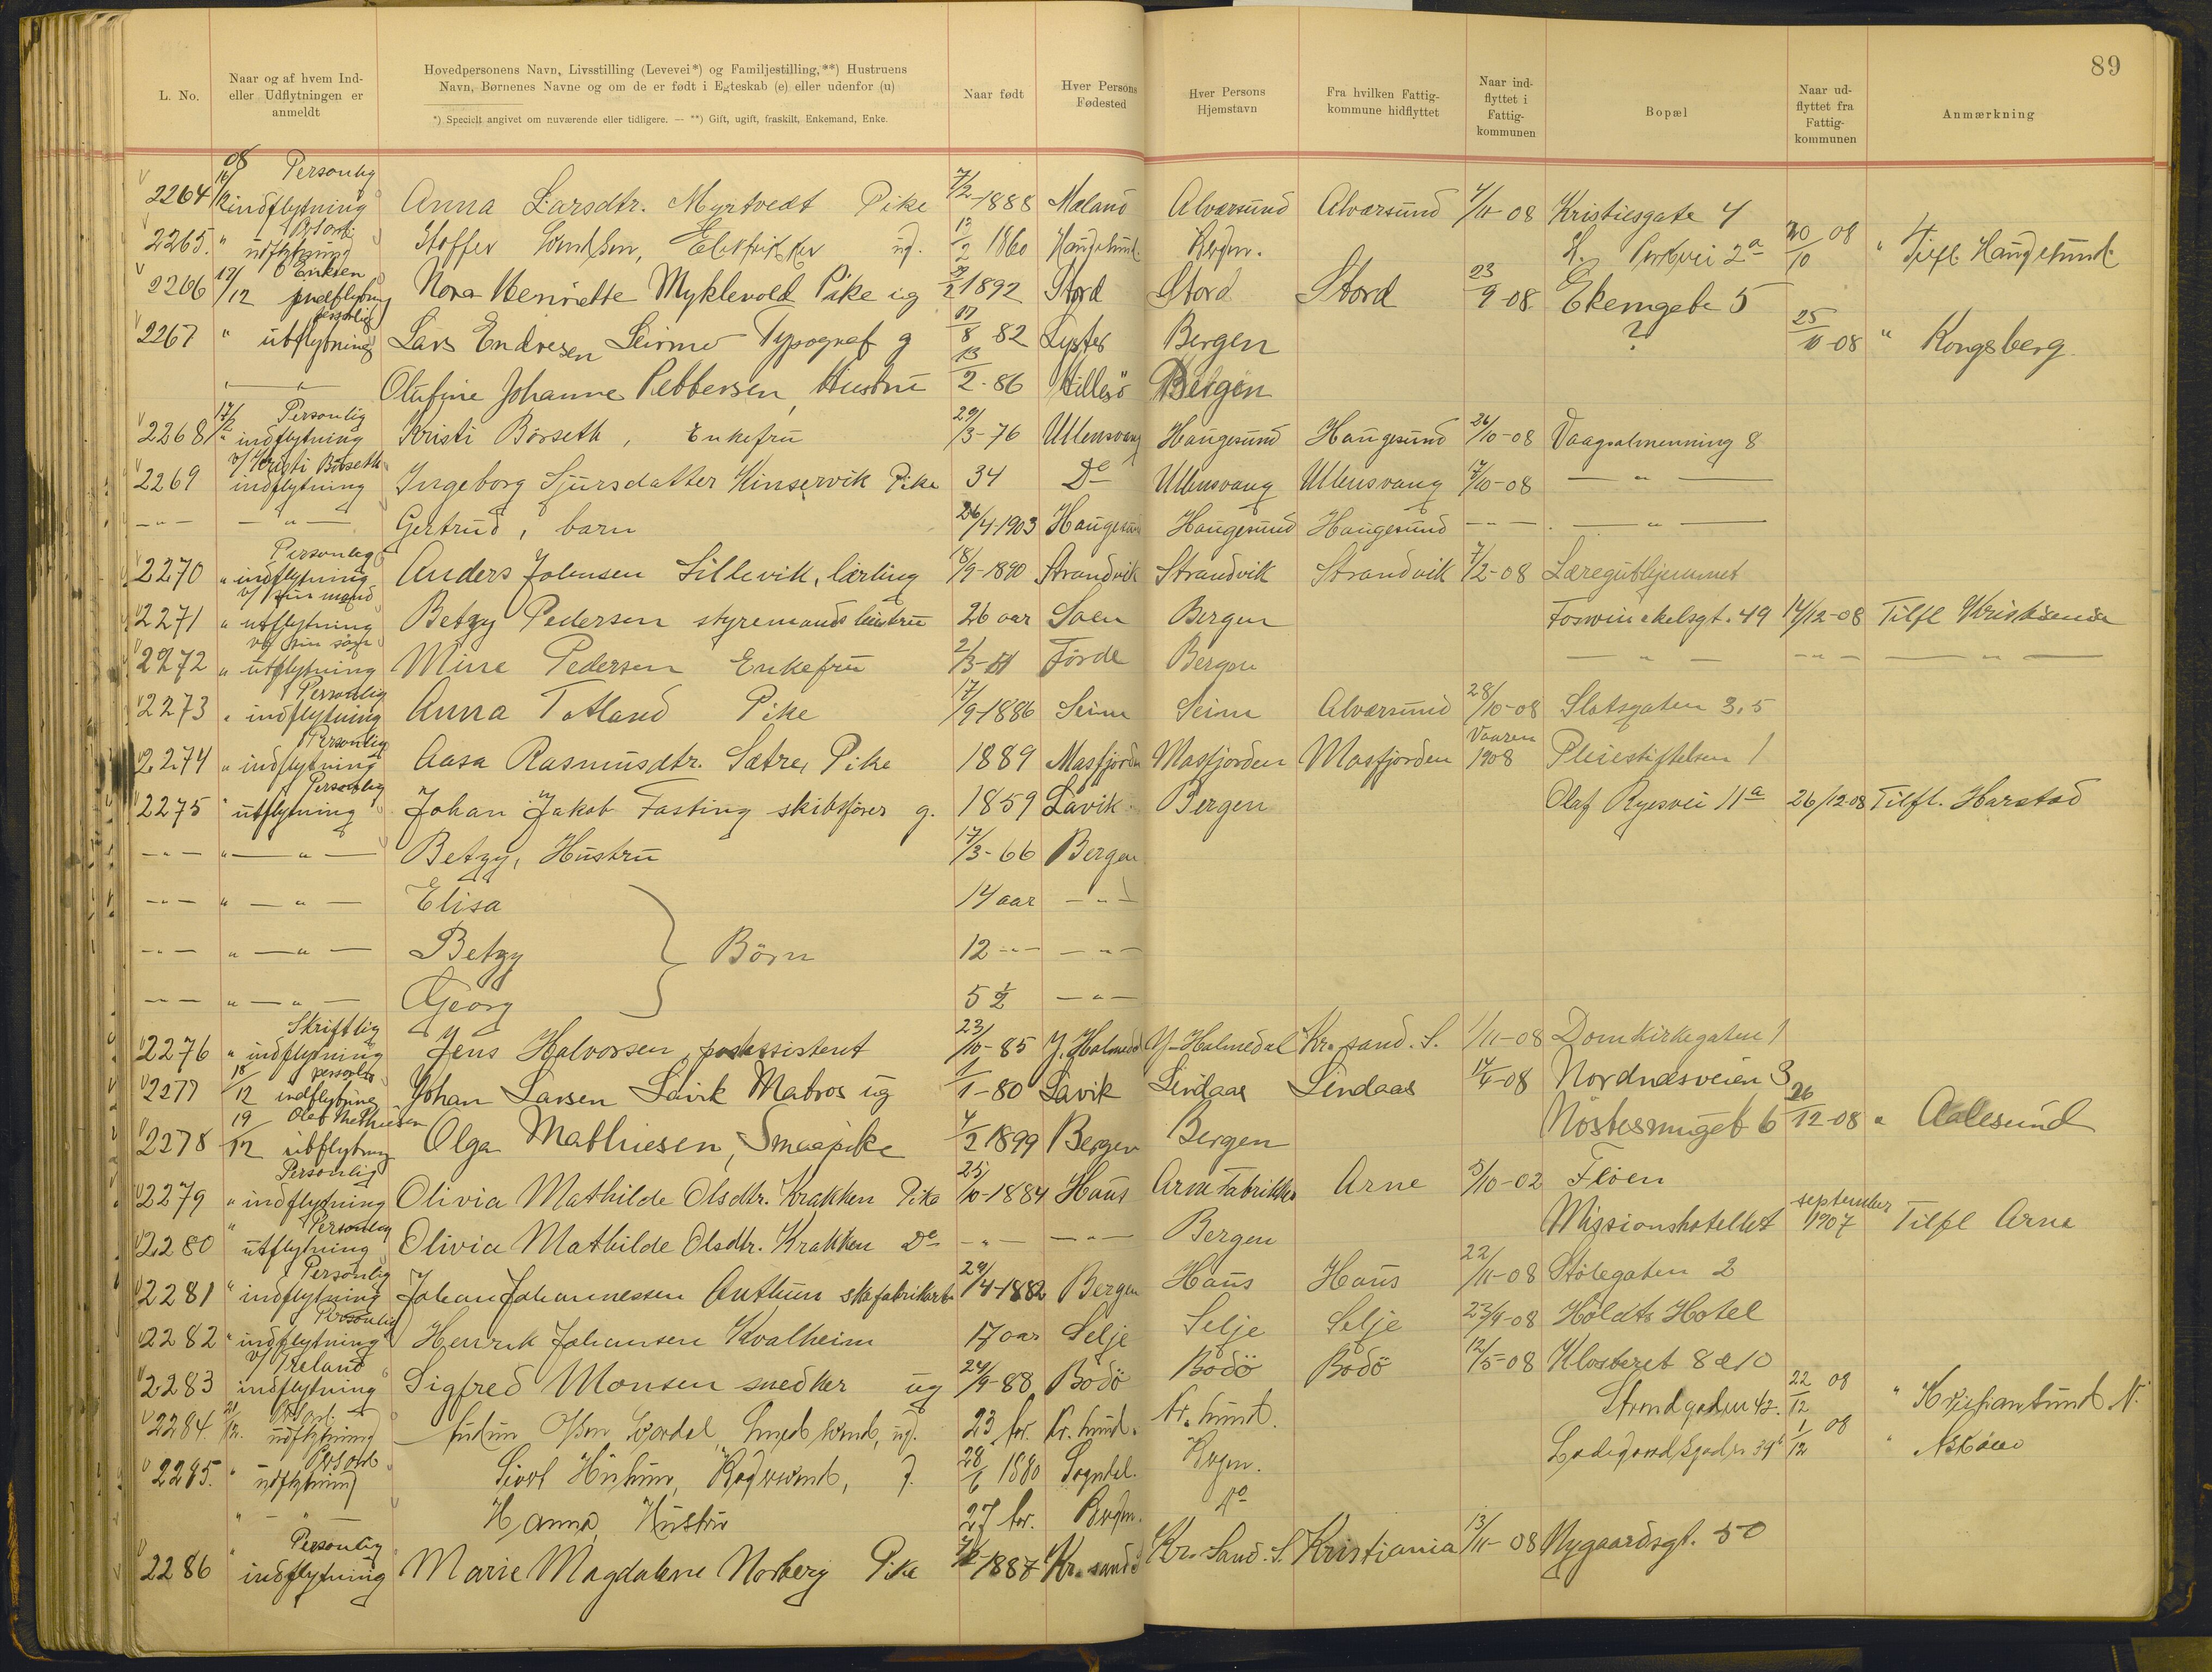 89
L. No. Naar og af hvem Ind- eller Udflytningen er anmeldt Hovedpersonens Navn, Livsstilling (Levevei*) og Familjestilling,**) Hustruens Navn, Børnenes Navne og om de er født i Egteskab (e) eller udenfor (u) Naar født Hver Persons Fødested Hver Persons Hjemstavn Fra hvilken Fattig- kommune hidflyttet Naar ind- flyttet i Fattig- kommunen Bopæl Naar ud- flyttet fra Fattig- kommunen Anmærkning
*) Specielt angivet om nuværende eller tidligere. — **) Gift, ugift, fraskilt, Enkemand, Enke.
2264 16/12 08 Personlig indflytning Anna Larsdtr. Myrtvedt Pike 7/2-1888 Mæland Alversund Alversund 4/11-08 Kristiesgate 4
2265. " udflytning Stoffer ug. 13/2 1860 Haugesund Bergen. 2a 20/10 08 " Tilfl. Haugesund
2266 17/12 Eriksen indflytning Nora Henriette Myklevold Pike ug 1892 Stord Stord Stord 23/9-08 Ekerngate 5
2267 " personlig utflytning Lars Endresen Leirmo Typograf g 17/8 82 Lyster Bergen ? 25/10-08 " Kongsberg
" Olufine Johanne Pettersen, Hustru 13/2-86 Hillesö Bergen
2268 17/12 Personlig indflytning Kristi Börseth, Enkefru 29/3-76 Ullensvang Haugesund Haugesund 26/10-08 Vaagsalmenning 8
2269 v/ Kristi Börseth indflytning Ingeborg Sjursdatter Kinservik Pike 34 Do Ullensvang Ullensvang 7/10-08 — " —
— " — — " — Gertrud, barn 26/4-1903 Haugesund Haugesund Haugesund — " — — " —
2270 " Personlig indflytning Anders Johnsen Lillevik, lærling 18/9-1890 Strandvik Strandvik Strandvik 7/2-08 Læreguthjemmet
2271 " v/ sin mand utflytning Betzy Pedersen styremands hustru 26 aar Bergen 49 14/12-08 Tilfl
2272 " ved sin sön utflytning Mine Pedersen Enkefru Förde Bergen — " — — " — — " —
2273 " Personlig indflytning Anna Totland Pike 17/9-1886 Seim Seim Alversund 28/10-08 Slotsgaten 3.5
2274 " Personlig indflytning Aasa Rasmusdtr. Sætre, Pike 1889 Masfjorden Masfjorden Masfjorden Vaaren 1908 Pleiestiftelsen 1
2275 " Personlig utflytning Johan Jakob Fasting skibsfører g. 1859 Lavik Bergen Olaf Ryesvei 11a 26/12-08 Tilfl. Harstad
— " — " — " — Betzy, Hustru 17/3-66 Bergen
— " — " — " — Elisa 14 aar — " —
— " — " — " — Betzy } Börn 12 — " — — " —
— " — " — " — Georg 5 1/2 — " —
2276 " Skriftlig indflytning Jens Halvorsen, postassistent 23/10-85 Y. Holmedal Y-Holmedal Kr.sand. S. 1/11-08 Domkirkegaten 1
2277 18/12 personlig indflytning Johan Larsen Lavik Matros ug 1/1-80 Lavik Lindaas Lindaas 14/4-08 Nordnesveien 3
2278 19/12 Olaf Mathiesen utflytning Olga Mathiesen, Smaapike 4/2 1899 Bergen Bergen Nöstesmuget 6 26/12-08 " Aalesund
2279 " Personlig indflytning Olivia Mathilde Olsdtr. Krakken Pike 25/10-1884 Haus Arne Fabrikker Arne 5/10-02 Flöen
2280 " Personlig utflytning Olivia Mathilde Olsdtr. Krakken Do — " — — " — Bergen Missionshotellet september 1907 Tilfl Arne
2281 " Personlig indflytning Johan Johannessen Anthun 29/4-1882 Bergen Haus Haus 22/11-08 Stölegaten 2
2282 " Personlig indflytning Henrik Johansen Kvalheim 17 aar Selje Selje Selje 23/9-08 Holdts Hotel
2283 v/ Ireland indflytning Sigfred Monsen snedker ug 24/9-88 Bodö Bodö Bodö 12/5-08 Klosteret 8 a 10
2284. 21/12. udflytning Olsen ug. 23 Kr.sund. Kr.sund. Strandgaden 42. 22/12 08 " Kristiansund N.
2285. " udflytning g. 28/6 1880 Sogndal. Bergen. 1/12 08 " Askøen
" Hanna, Hustru 27 Bergen. Do
2286 " Personlig indflytning Marie Magdalene Norberg Pike 1887 Kr.sand Kr. Sand. S. Kristiania 13/11-08 Nygaardsgt. 50